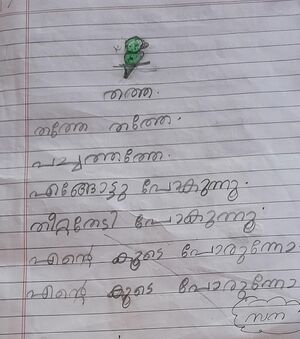 തത്ത.
തത്തേ തത്തേ.
പച്ചതത്തേ.
എങ്ങോട്ടു പോകുന്നു.
തീറ്റതേടി പോകുന്നു.
എന്റെ കൂടെ പോരുന്നോ
എന്റെ കൂടെ പോരുന്നോ
സന